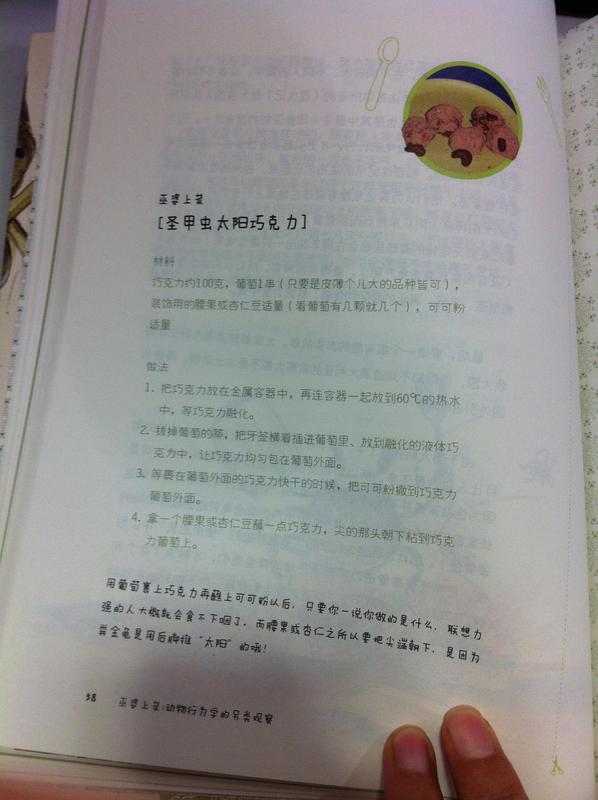 巫婆上菜
[圣甲虫太阳巧克力]
材料
巧克力约100克，葡萄1串（只要是皮薄个儿大的品种皆可），
装饰用的腰果或杏仁豆适量（看葡萄有几颗就几个），可可粉
适量
做法
1. 把巧克力放在金属容器中，再连容器一起放到60℃的热水
中，等巧克力融化。
2. 拔掉葡萄的蒂，把牙签横着插进葡萄里、放到融化的液体巧
克力中，让巧克力均匀包在葡萄外面。
3. 等裹在葡萄外面的巧克力快干的时候，把可可粉撒到巧克力
葡萄外面。
4. 拿一个腰果或杏仁豆蘸一点巧克力，尖的那头朝下粘到巧克
力葡萄上。
用葡萄裹上巧克力再蘸上可可粉以后，只要你一说你做的是什么，联想力
强的人大概就会食不下咽了，而腰果或杏仁之所以要把尖端朝下，是因为
粪金龟是用后脚推“太阳”的哦！
58 巫婆上菜:动物行为学的另类观察